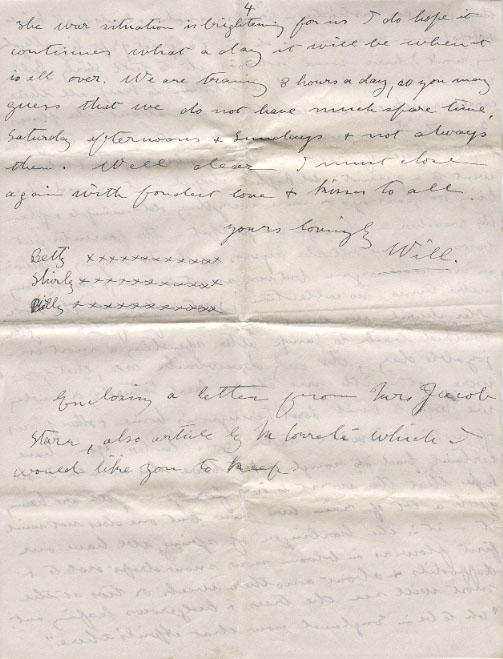 4
The war situation is brightening for us I do hope it
continues what a day it will be when it
is all over. We are training 8 hours a day, so you may
guess that we do not have much spare time,
Saturday afternoons & Sundays & not always
them. Well dear I must close
again with fondest love & kisses to all
yours lovingly
Will.
Betty xxxxxxxxxxxx
Shirley xxxxxxxxxxxx
Billy xxxxxxxxxxxx
Enclosing a letter from Mrs Jacob
Starr, also article by which I
would like you to keep